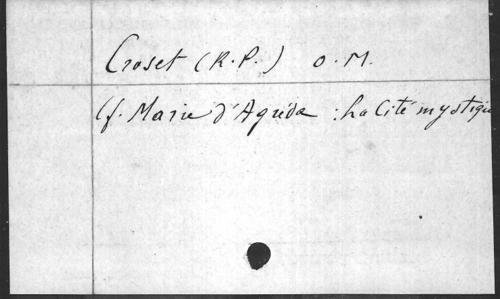 Croset (R.P.) O.M.
Cf. Marie d'Agréda : La Cité mystique